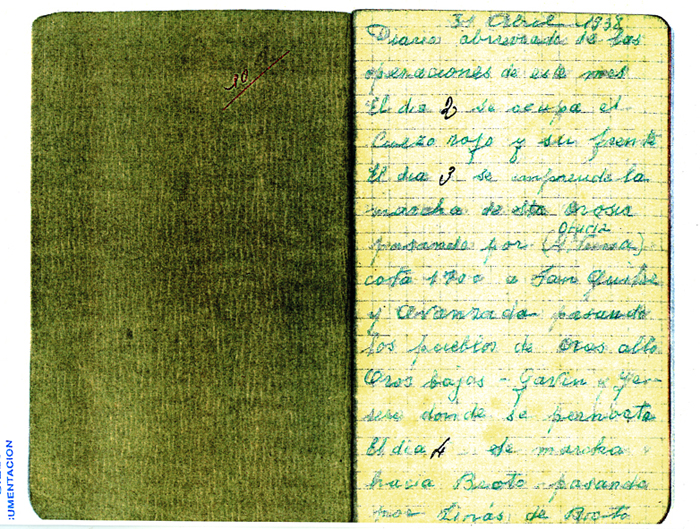 31 Abril 1938
Diario abreviado de las
operaciones de este mes
El dia 2 se ocupa el
Cuezo rojo y su frente
El dia 3 se emprende la
marcha de sta Orosia
pasando por
cota 1700 a San Quilez
y Avanzada pasando
los pueblos de Oros alto
Oros bajos - Gavin y Yer-
sero donde se pernocta
El dia 4 se marcha
hacia Broto pasando
por Linás de Broto
UMENTACION